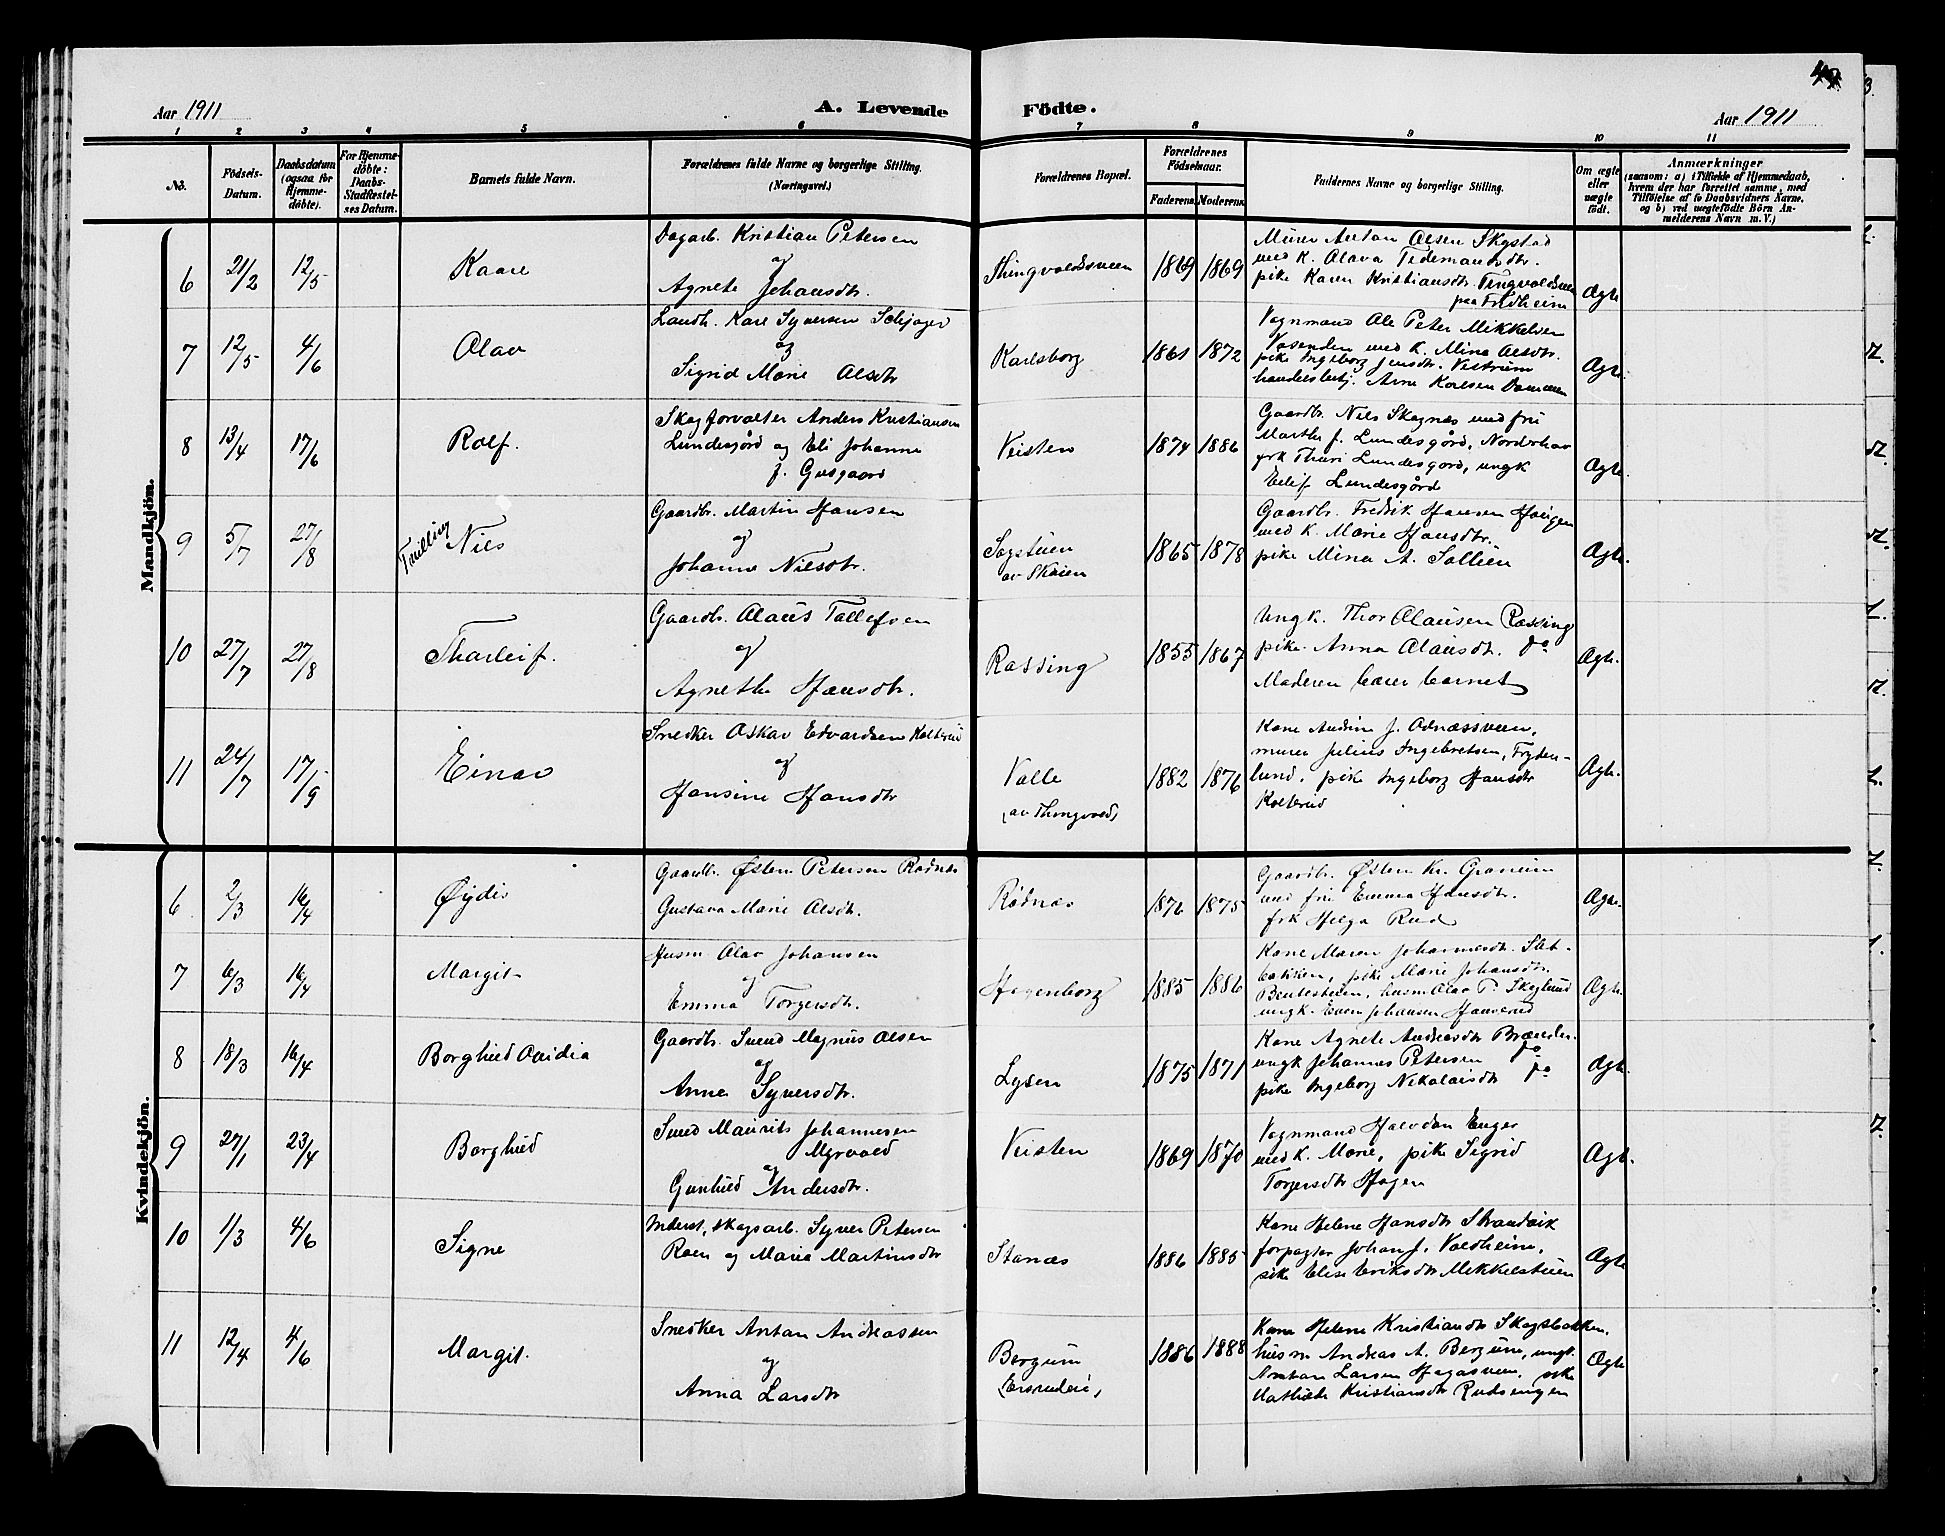 Aar 1911 A. Levende Födte. Aar 1911
1 2 3 4 5 6 7 8 9 10 11
No. Födsels-Datum. Daabsdatum (ogsaa for Hjemmedöbte). For Hjemmedöbte: Daabs-Stadfæstelses Datum. Barnets fulde Navn. Forældrenes fulde Navne og borgerlige Stilling. (Næringsvei.) Forældrenes Bopæl. Forældrenes Födselsaar. Faderens. Moderens. Faddernes Navne og borgerlige Stilling. Om ægte eller uægte födt. Anmærkninger (saasom: a) i Tilfælde af Hjemmedaab, hvem der har forrettet samme, med Tilföielse af to Daabsvidners Navne, og b) ved uægtefödte Börn Anmelderens Navn m. V.)
Mandkjön.
6 21/2 12/5 Kaare Dagarb. Kristian Petersen og Agnete Johansdtr. Thingvoldsveen 1869 1869 Murer Anton Olsen Skystad
med K. Olava Tidemansdtr.
pike Karen Kristiansdt. Tingvoldsveen
paa Fridheim Ægte
7 12/5 4/6 Olav Landh. Kare Syversen Schjager og Sigrid Marie Olsdtr Karlsborg 1861 1872 Vognmand Ole Peter Mikkelsen
Vosenden med K. Mina Olsdtr.
pike Ingeborg Jensdtr. Vestrum
handelsbetj. Arne Karlsen Dammen Ægte
8 13/4 17/6 Rolf. Skogforvalter Anders Kristiansen
Lundesgård og Eli Johanne
f. Gusgaard Veisten 1874 1886 Gaardbr. Nils Skagnæs med fru
Marthe f. Lundesgård, Norderhov
frk Thuri Lundesgård, ungk
Eilif Lundesgård Ægte
9 5/7 27/8 Tvilling Nils Gaardbr. Martin Hansen og Johanne Nilsdtr. Sagstuen
av Skøien 1865 1878 Gaardbr. Fredrik Hansen Haugen
med K. Marie Hansdtr.
pike Mina A. Sollien Ægte.
10 27/7 27/8 Thorleif. Gaardbr. Olaus Tollefsen og Agnethe Hansdtr. Røssing 1855 1867 Ungk. Thor Olausen Røssing
pike Anna Olausdtr. do
Moderen barer barnet Ægte.
11 24/7 17/9 Einar Snedker Oskar Edvardsen Kolterud og Hansine Hansdtr Valle
(av Thingvold) 1882 1876 Kone Andrine J. Odnæssveen,
murer Julius Ingebretsen, Fryden-
lund, pike Ingeborg Hansdtr
Kolterud Ægte.
Kvindekjön.
6 2/3 16/4 Øydis Gaardbr. Østen Petersen Rødnes
Gustava Marie Olsdt. Rødnæs 1876 1875 Gaardbr. Østen Kr. Granum
med fru Emma Hansdtr.
frk Helga Rud Ægte.
7 6/3 16/4 Margit Husm Olav Johansen og Emma Torgersdtr. Hagenborg 1885 1886 Kone Maren Johannesdt. Slet-
bakken, pike Marie Johansdtr.
husm Olav P. Skoglund
ungk. Even Johansen Ægte.
8 18/3 16/4 Borghild Ovidia Gaardbr. Svend Magnus Olsen og Anne Syversdtr. Lysen 1875 1871 Kone Agnete Andreasdtr
ungk Johannes Petersen do
pike Ingeborg Nikolaisdtr do Ægte.
9 27/1 23/4 Borghild Smed Maurits Johannesen
Myrvold og Gunhild Andersdtr. Veisten 1869 1870 Vognmand Halvdan Enger
med K. Marie, pike Sigrid
Torgersdtr Hagen Ægte.
10 1/3 4/6 Signe Inderst, skogsarb. Syver Petersen
Roen og Maria Martinsdtr Stanæs 1886 1885 Kone Helene Hansdtr Strandvik
forpagter Johan J. Voldheim,
pike Elise Eriksdtr Mikkelstuen Ægte
11 12/4 4/6 Margit. Snedker Anton Andreassen og Anna Larsdtr Bergum 1886 1888 Kone Helene Kristiansdtr Skogsbakken.
husm Andreas A. Bergum, ungk.
Larsen Hagasveen, pike
Mathilde Kristiansdtr Rudsengen Ægte